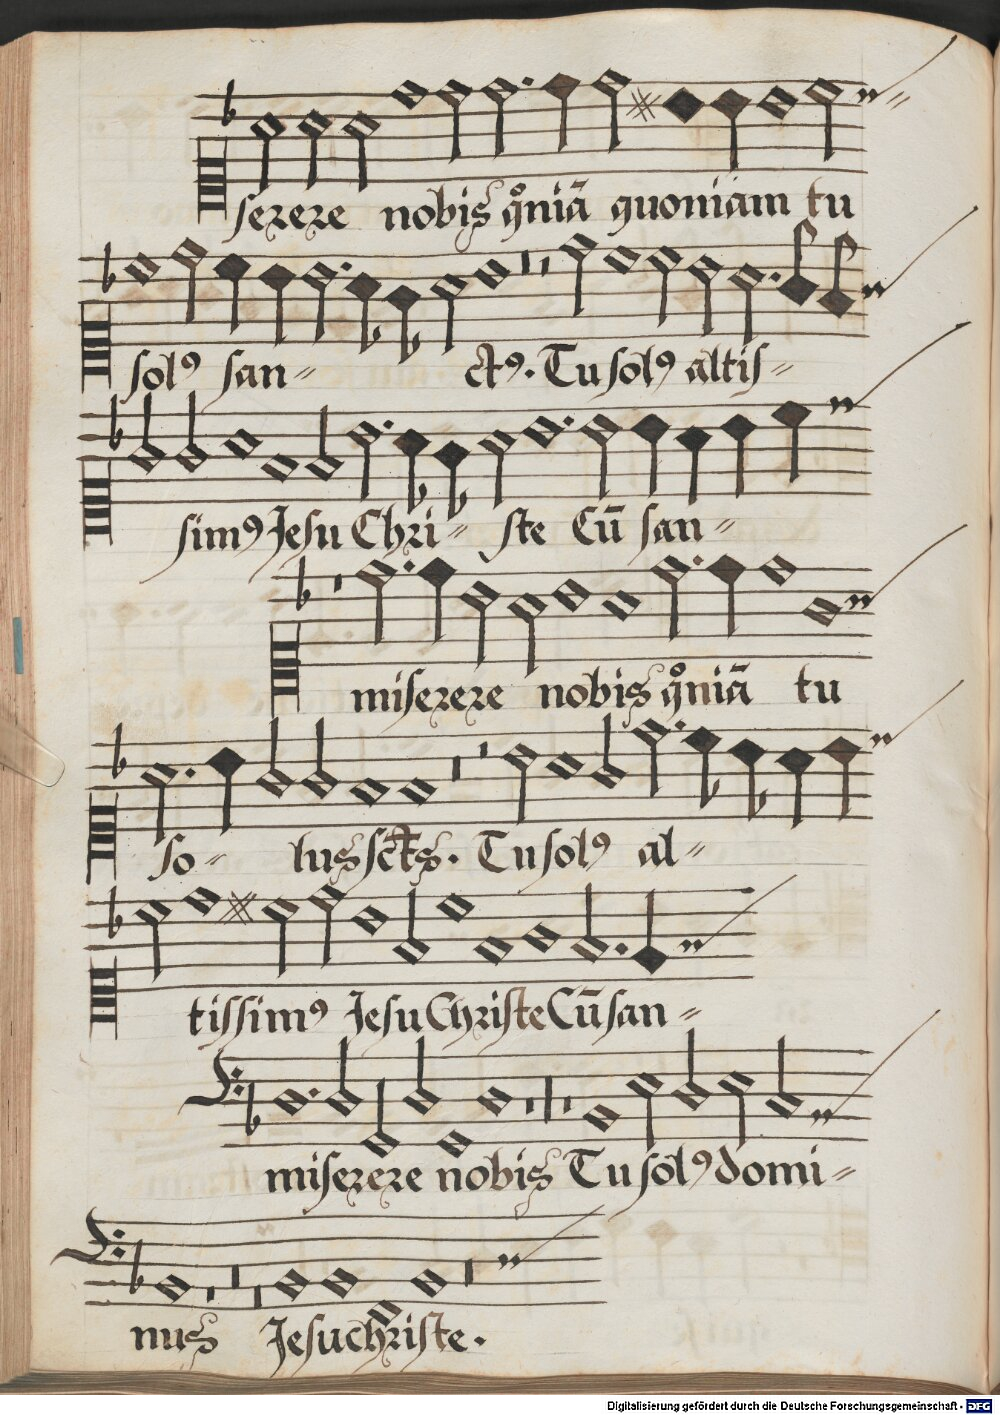 serere nobis qoniā quoniam tu
solꝰ san= ctꝰ. Tu solꝰ altis=
simꝰ Jesu Chri= ste Cū san=
miserere nobis qoniā tu
so= lus sc̄ts. Tu solꝰ al=
tissimꝰ Jesu Christe Cū san=
miserere nobis Tu solꝰ domi=
nus Jesu christe.
Digitalisierung gefördert durch die Deutsche Forschungsgemeinschaft - DFG